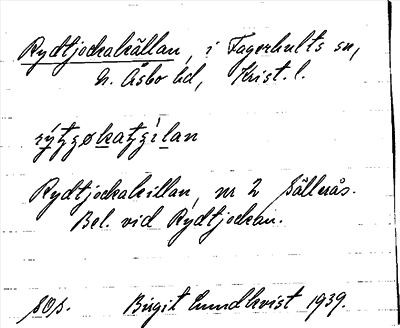 Rydtjockakällan, i Fagerhults sn,
N. Åsbo hd, Krist. l.
Rydtjockakillan, nr 2 Sällerås.
Bel. vid Rydtjockan.
sös. Birgit Lundkvist 1939.